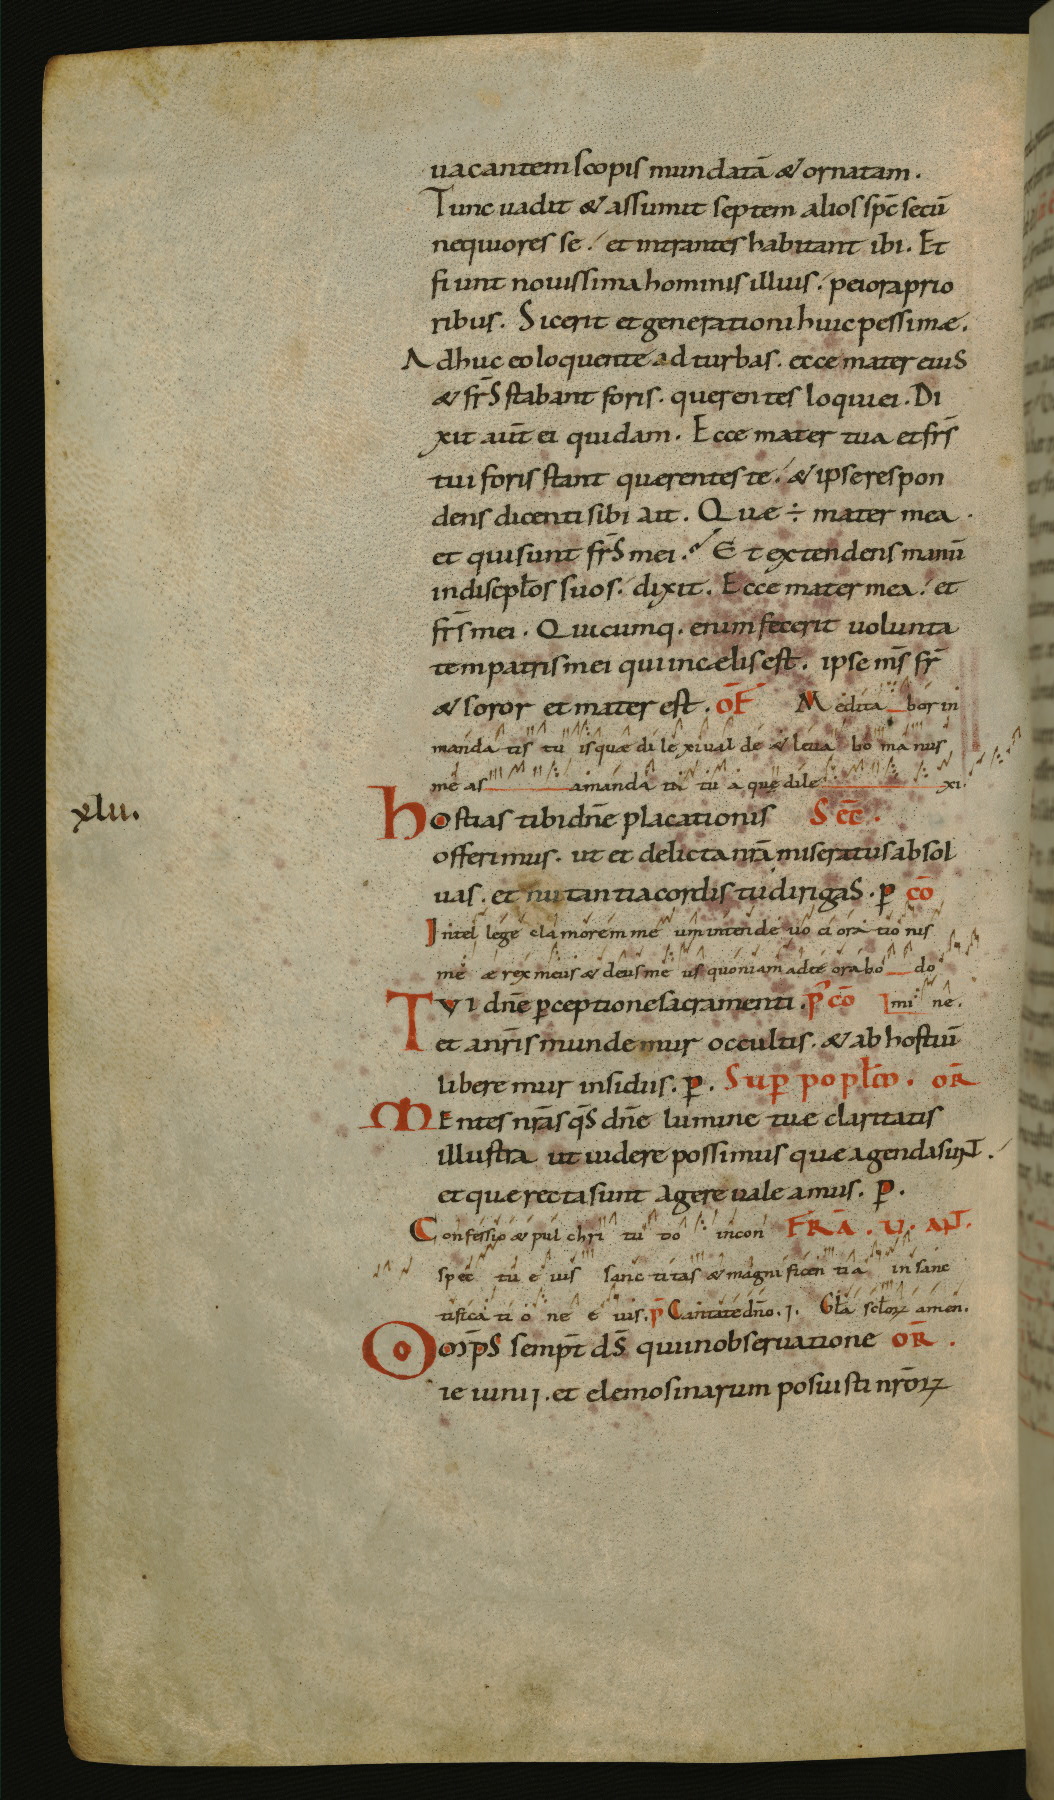 uacantem scopis mundatā & ornatam.
Tunc uadit & assumit septem alios spc̄ secū
nequiores se. et intrantes habitant ibi. Et
fiunt nouissima hominis illius. peiora prio
ribus. Sic erit et generationi huic pessimæ.
Adhuc eo loquente ad turbas. ecce mater eiuS
& fr̄S stabant foris. querentes loqui ei. Di
xit aūt ei quidam. Ecce mater tua et fr̄s
tui foris stant quærentes te. & ipse respon
dens dicenti sibi ait. Quæ ÷ mater mea.
et qui sunt fr̄S mei. Et extendens manū
in discipl̄os suos. dixit. Ecce mater mea. et
fr̄s mei. Quicumq. enim fecerit uolunta
tem patris mei qui in cælis est. ipse ms̄ fr̄
& soror et mater est. oF̄ Medita bor in
manda tis tu is quæ di le xi ual de & leua bo ma nus
me as a manda ta tu a que dile xi.
xlii.
hostias tibi dn̄e placationis Sēc.
offerimus. ut et delicta nr̄a miseratus absol
uas. et nutantia corda tu dirigaS. p̱ cō
Intel lege clamorem me um intende uo ci ora tio nis
me æ rex meus & deus me us quoniam ad te orabo do
TVI dn̄e p̱ceptione sacramenti. p̄ cō mi ne.
et a nr̄is mundemur occultis. & ab hostiū
liberemur insidiis. p̱. Sup̱ popl̄m. oR̄
MEntes nr̄as qS̄ dn̄e lumine tuæ claritatis
illustra ut uidere possimus quæ agenda sunt.
et quæ recta sunt agere ualeamus. p̱.
Confessio & pul chri tu do in con FR̄A. U. ANT.
spec tu e ius sanc titas & magni ficen tia in sanc
tifica ti o ne e ius. p̄ Cantate dn̄o. i. Gl̄a sc̄loꝝ amen.
Omp̄S semp̄t dS̄ qui in obseruatione oR̄.
ieiunii. et elemosinarum posuisti nr̄oꝝ